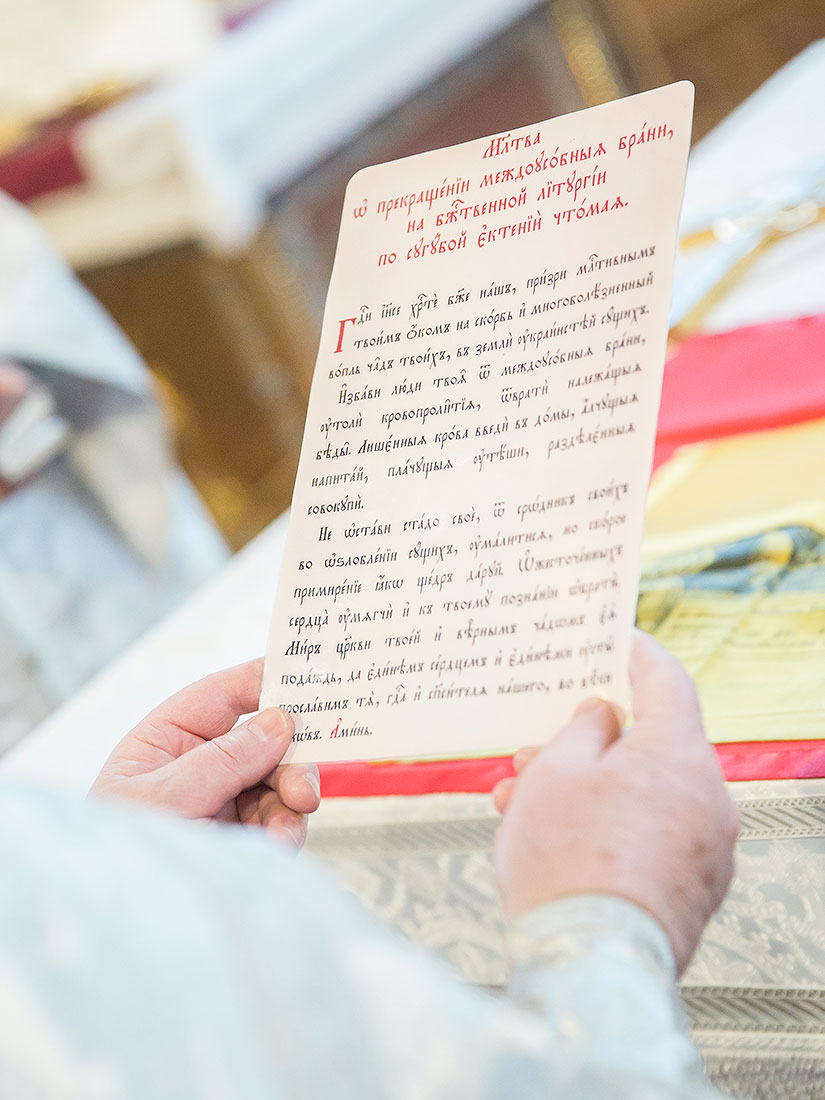 Мл҃тва
ѡ҆ прекраще́нїи междоусо́бныѧ бра́ни,
на бж҃е́ственной лїтꙋргі́и
по сꙋгꙋ́бой є҆ктенїѝ что́маѧ.
Гдⷭ҇и і҆и҃се хрⷭ҇тѐ бж҃е на́шъ, при́зри млⷭ҇тивнымъ
твои́мъ ѻ҆́комъ на ско́рбь и҆ многоболѣ́зненный
во́пль ча̑дъ твои́хъ, въ землѝ ᲂу҆краи́нстѣй сꙋ́щихъ.
И҆зба́ви лю́ди твоѧ̑ ѿ междоусо́бныѧ бра́ни,
ᲂу҆толѝ кровопроли̑тїѧ, ѿвратѝ належа́щыѧ
бѣды̑. Лише́нныѧ кро́ва введѝ въ до́мы, а҆́лчꙋщыѧ
напита́й, пла́чꙋщыѧ ᲂу҆тѣ́ши, раздѣле́нныѧ
совокꙋпѝ.
Не ѡ҆ста́ви ста́до своѐ, ѿ сро́дникъ свои́хъ
во ѡ҆ѕлобле́нїи сꙋ́щихъ, ᲂу҆ма́литисѧ, но ско́рое
примире́нїе ꙗ҆́кѡ ще́дръ да́рꙋй. Ѡ҆жесточе́нныхъ
сердца̀ ᲂу҆мѧгчѝ и҆ къ твоемꙋ̀ позна́нїю ѡ҆братѝ.
Ми́ръ цр҃кви твое́й и҆ вѣ̑рнымъ ча́дѡмъ є҆ѧ̀
пода́ждь, да є҆ди́нѣмъ се́рдцемъ и҆ є҆ди́нѣми ᲂу҆сты̀
просла́вимъ тѧ̀, гдⷭ҇а и҆ сп҃си́телѧ на́шего, во вѣ́ки
вѣкѡ́въ. А҆ми́нь.